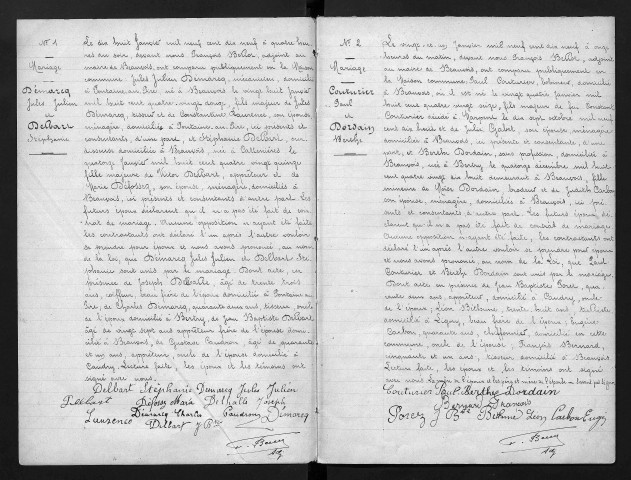 N° 1
Mariage
Démarcq
Jules Julien
et
Delbart
Stéphanie
Le dix huit Janvier mil neuf cent dix neuf à quatre heu-
res du soir, devant nous François Bélior, adjoint au
maire de Beauvois, ont comparu publiquement en la Maison
commune Jules Julien Démarcq, mécanicien, domicilié
à Fontaine-au-Pire, né à Beauvois le vingt huit Janvier
mil huit cent quatre vingt douze, fils majeur de Jules
Démarcq, tisseur et de Constance Laurence, son épouse,
ménagère, domiciliés à Fontaine-au-Pire, ici présents et
consentants, d'une part, et Stéphanie Delbart,
domiciliée à Beauvois, née à Cattenières le
quatorze Janvier mil huit cent quatre vingt quinze
fille majeure de Victor Delbart, appréteur et de
Marie Déforez, son épouse, ménagère, domiciliés à
Beauvois, ici présents et consentants d'autre part. Les
futurs époux déclarent qu'il n'a pas été fait de con-
trat de mariage. Aucune opposition n'ayant été faite
les contractants ont déclaré l'un après l'autre vouloir
se prendre pour époux et nous avons prononcé, au nom
de la loi, que Démarcq Jules Julien et Delbart Sté-
phanie sont unis par le mariage. Dont acte, en
présence de Joseph Delhalle, âgé de trente
ans, coiffeur, beau frère de l'époux domicilié à Fontaine au
Pire, de Charles Démarcq, quarante deux ans, tisseur, oncle
de l'époux domicilié à Bertry, de Jean Baptiste Delbart,
âgé de vingt sept ans appréteur frère de l'épouse domi-
cilié à Beauvois, de Gustave Caudron, âgé de quarante
et un ans, appréteur, oncle de l'épouse domicilié à
Caudry. Lecture faite, les époux et les témoins ont
signé avec nous.
Delbart Stéphanie Démarcq Jules Julien
Delbart Déforez Maria Delhalle Joseph
Laurence Démarcq Charles Caudron Démarcq
Delbart J Bte
N° 2
Mariage
Couturier
Paul
et
Dordain
Berthe
Le vingt Janvier mil neuf cent dix neuf à onze
heures du matin, devant nous François Bélior, adjoint
au maire de Beauvois, ont comparu publiquement en
la Maison commune Paul Couturier, domicilié
à Beauvois où il est né le vingt quatre Janvier mil
huit cent quatre vingt dix, fils majeur de
Couturier décédé à le sept octobre mil neuf
cent dix huit et de Julie son épouse, ménagère
domiciliée à Beauvois, ici présente et consentante, d'une
part, et Berthe Dordain, sans profession, domiciliée à
Beauvois, née à Bertry le quatorze décembre mil huit
cent quatre vingt dix huit demeurant à Beauvois, fille
mineure de Moïse Dordain, tisseur et de Judith Carbon
son épouse, ménagère, domiciliés à Beauvois, ici pré-
sents et consentants d'autre part. Les futurs époux dé-
clarent qu'il n'a pas été fait de contrat de mariage.
Aucune opposition n'ayant été faite, les contractants ont
déclaré l'un après l'autre vouloir se prendre pour époux
et nous avons prononcé, au nom de la Loi, que Paul
Couturier et Berthe Dordain sont unis par le mariage.
Dont acte en présence de Jean Baptiste Porez, qua-
rante ans, appréteur, domicilié à Caudry, oncle
de l'époux, Léon Béthune, trente huit ans, tulliste
domicilié à Ligny, beau frère de l'époux, Eugène
Carbon, quarante ans, chiffonnier, domicilié en cette
commune, oncle de l'épouse, François Bernard,
cinquante et un ans, domicilié à Beauvois.
Lecture faite, les époux et les témoins ont signé
avec nous
Couturier Paul Berthe Dordain
Bernard François
Porez J Bte Béthune Léon Carbon Eug